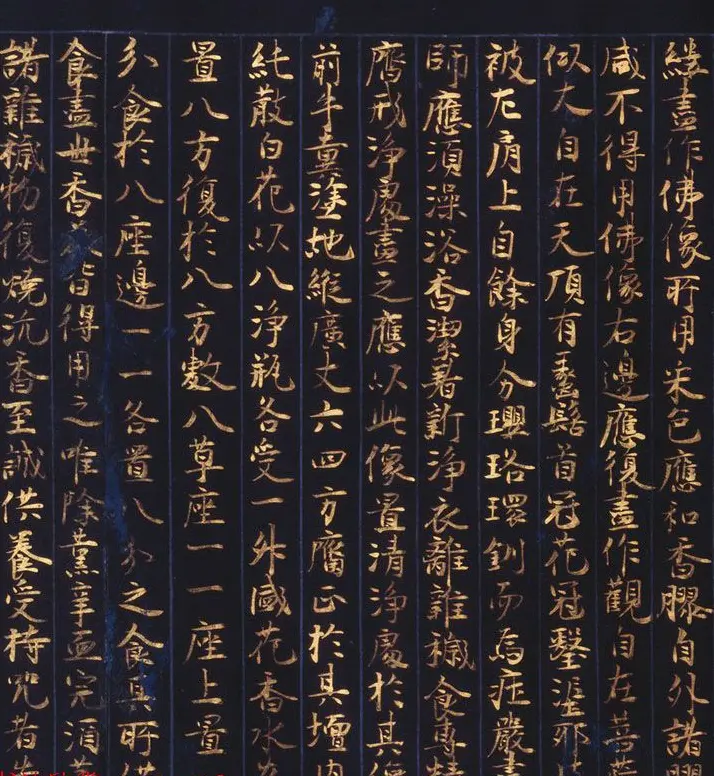 縷畫作佛像所用采色應和香膠自外諸膠
咸不得用佛像右邊應復畫作觀自在菩薩
似大自在天頂有螺髻首冠花冠翳埿耶
被左肩上自餘身分瓔珞環釧而為莊嚴畫
師應須澡浴香潔著新淨衣離雜穢食專持
齋戒淨處畫之應以此像置清淨處於其像
前牛糞塗地縱廣丈六四方齊正於其壇內
純散白花以八淨瓶各受一升盛花香水
置八方復於八方敷八草座一一座上置
分食於八座邊一一各置八分之食其所供
食盡世香美皆得用之唯除薰辛血完酒
諸雜穢物復燒沉香至誠供養受持咒者